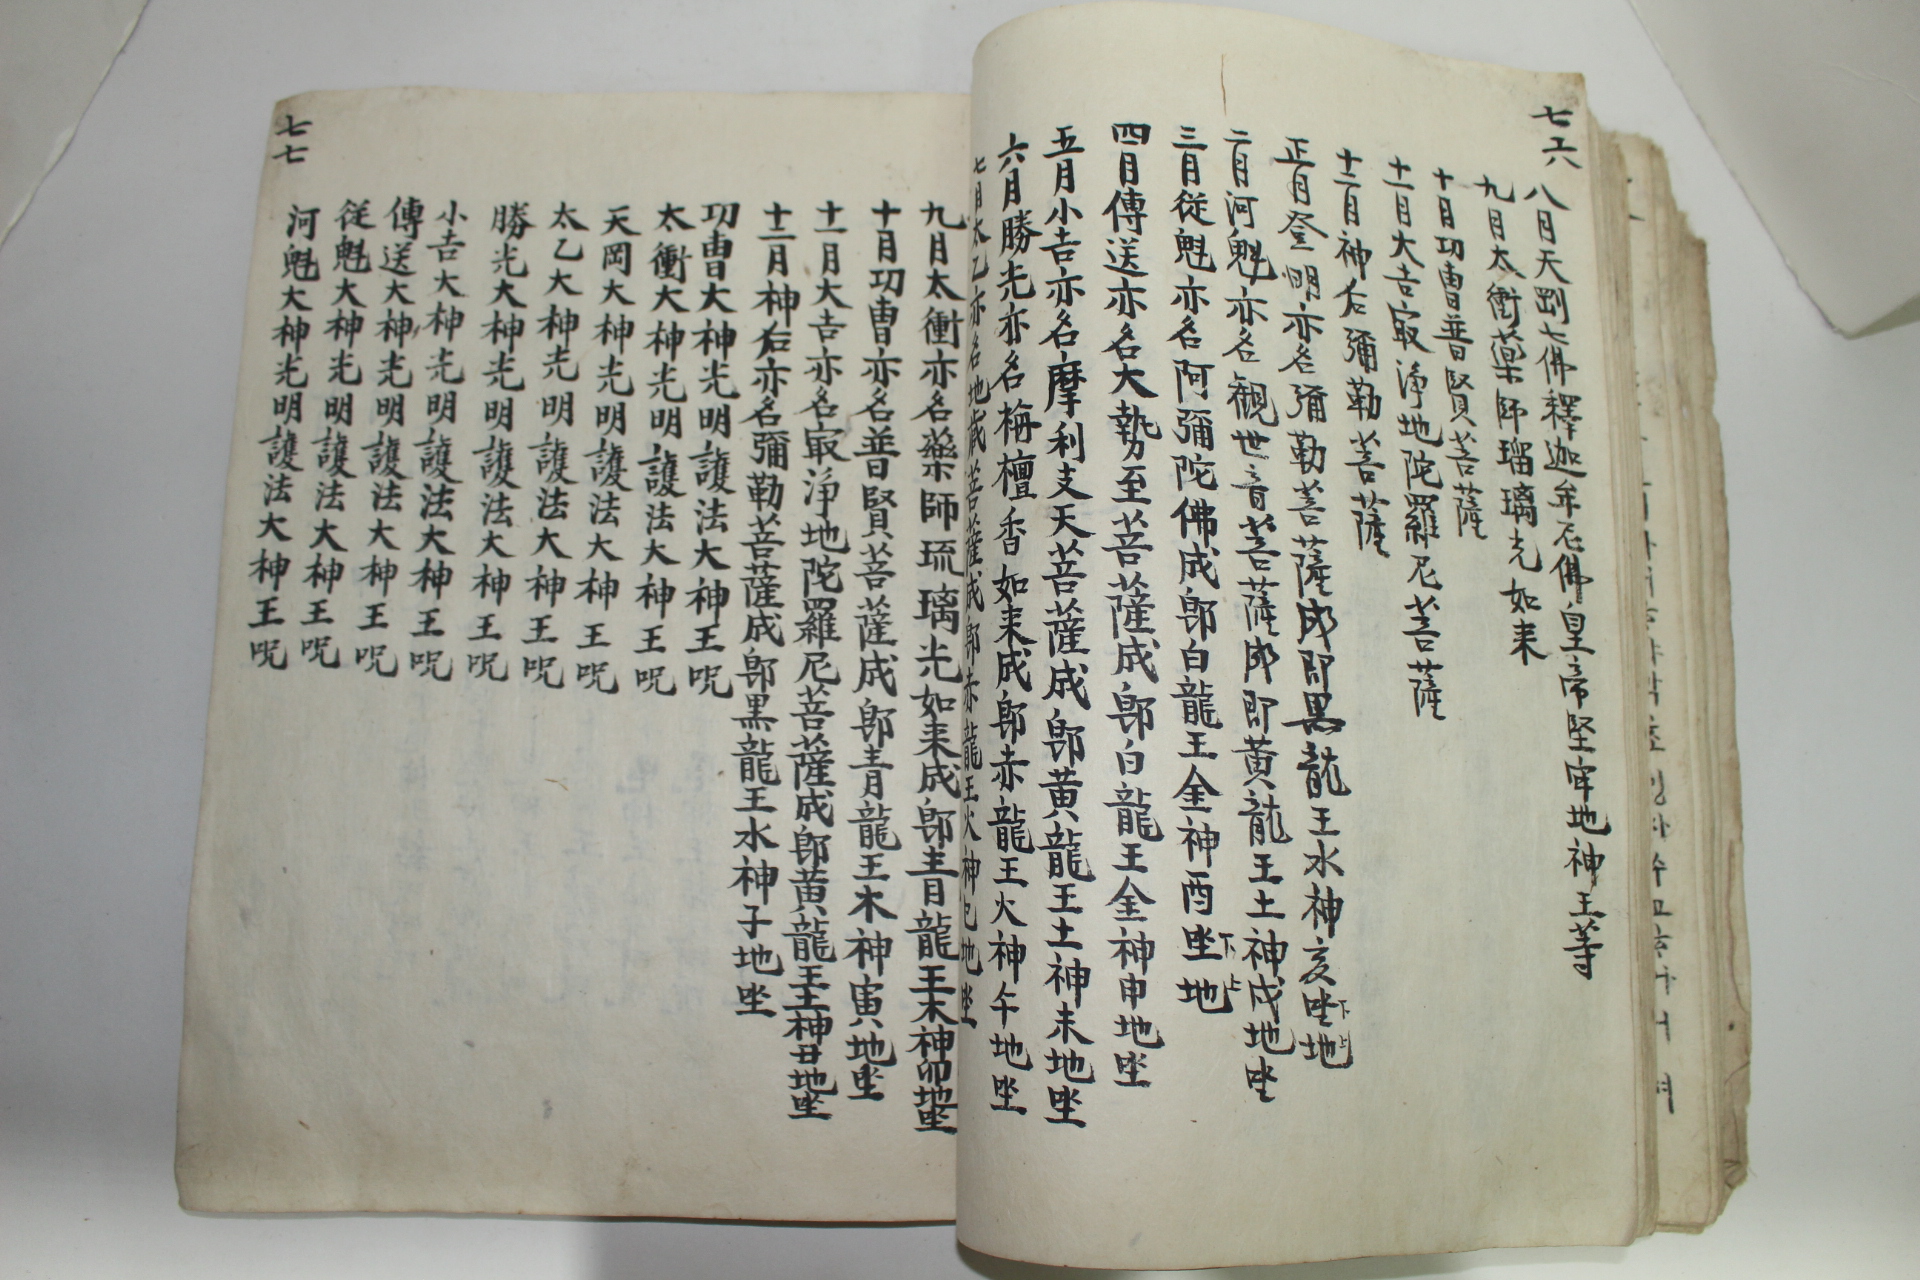 七六
八月天剛七佛釋迦牟尼佛皇帝堅牢地神王等
九月太衝藥師瑠璃光如来
十月功曹普賢菩薩
十一月大吉㝡淨地陀羅尼菩薩
十二月神后彌勒菩薩
正月登明亦名彌勒菩薩成即黒龍王水神亥坐地
二月河魁亦名觀世音菩薩成即黄龍王土神戌地坐
三月從魁亦名阿彌陀佛成郎白龍王金神酉坐地
四月傳送亦名大勢至菩薩成郎白龍王金神申地坐
五月小吉亦名摩利支天菩薩成郎黄龍王土神未地坐
六月勝光亦名栴檀香如来成郎赤龍王火神午地坐
七月太乙亦名地蔵菩薩成郎赤龍王火神巳地坐
九月太衝亦名藥師琉璃光如来成郎青龍王木神卯地坐
十月功曹亦名普賢菩薩成郎青龍王木神寅地坐
十一月大吉亦名㝡淨地陀羅尼菩薩成郎黄龍王土神丑地坐
十二月神后亦名彌勒菩薩成郎黒龍王水神子地坐
功曹大神光明護法大神王呪
太衝大神光明護法大神王呪
天岡大神光明護法大神王呪
太乙大神光明護法大神王呪
勝光大神光明護法大神王呪
小吉大神光明護法大神王呪
傳送大神光明護法大神王呪
從魁大神光明護法大神王呪
河魁大神光明護法大神王呪
七七